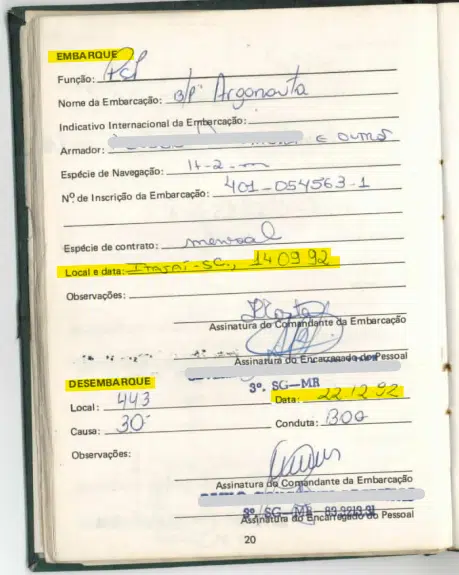 EMBARQUE
Função: Pcl
Nome da Embarcação: B/P Argonauta
Indicativo Internacional da Embarcação:
Armador: E OUTROS
Espécie de Navegação: H-2-m
Nº de Inscrição da Embarcação: 401-054563-1
Espécie de contrato: mensal
Local e data: ITAJAÍ-SC., 14 09 92
Observações:
Assinatura do Comandante da Embarcação
Assinatura do Encarregado do Pessoal
3º. SG—MR
DESEMBARQUE
Local: 443 Data: 22.12.92
Causa: 30- Conduta: BOA
Observações:
Assinatura do Comandante da Embarcação
SG—MR
Assinatura do Encarregado do Pessoal
20